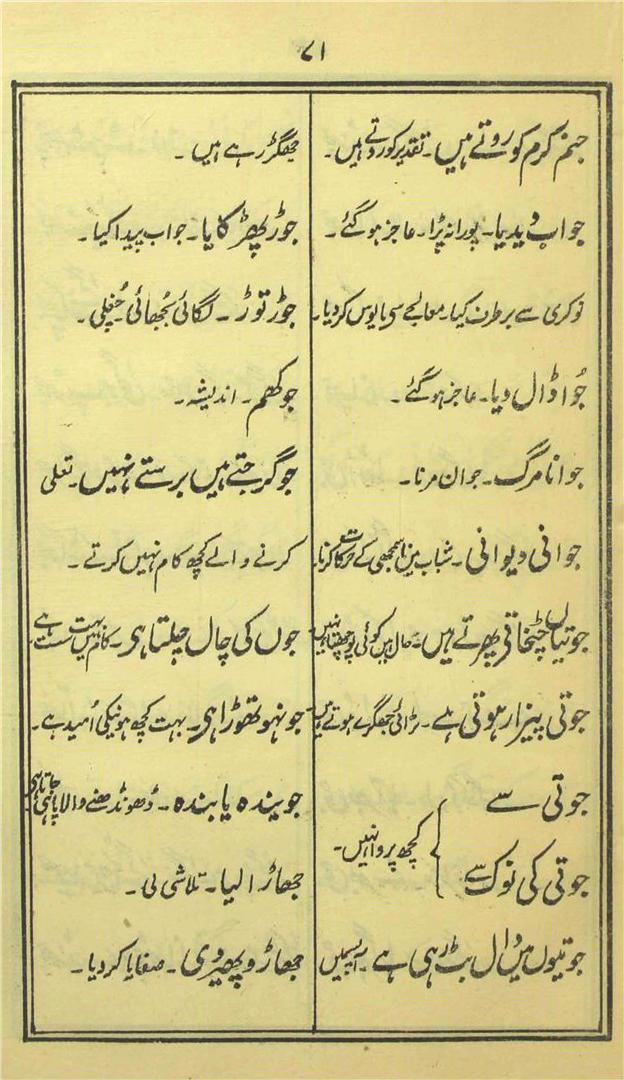 ۷۱
جنم کرم کو روتے ہیں۔ تقدیر کو روتے ہیں۔
جواب دیدیا۔ پورا نہ پڑا۔ عاجز ہو گئے۔
نوکری سے برطرف کیا۔ معالجے سی مایوس کر دیا۔
جُوا ڈال دیا۔ عاجز ہو گئے۔
جوانا مرگ۔ جوان مرنا۔
جوانی دیوانی۔ شباب میں ناسمجھی کے حرکات کرنا
جوتیاں چٹخاتی پھرتے ہیں۔ حال میں کوئی پوچھتا نہیں
جوتی پیزار ہوتی ہے۔ لڑائی جھگڑے ہوتے ہیں۔
جوتی سے
جوتی کی نوک سے
کچھ پروا نہیں۔
جوتیوں میں دال بٹ رہی ہے۔ آپسمیں
جھگڑ رہے ہیں۔
جوڑ پھڑکایا۔ جواب پیدا کیا۔
جوڑ توڑ۔ لگائی بُجھائی چُغلی۔
جوکھم۔ اندیشہ۔
جو گرجتے ہیں برستے نہیں۔ تعلی
کرنے والے کچھ کام نہیں کرتے۔
جوں کی چال چلتا ہی۔ کام میں بہت سست ہے
جو نہو تھوڑا ہی۔ بہت کچھ ہونیکی اُمید ہے۔
جویندہ یابندہ۔ ڈھونڈھنے والا پا ہی جاتا ہی
جھاڑا لیا۔ تلاشی لی۔
جھاڑو پھیر دی۔ صفایا کر دیا۔